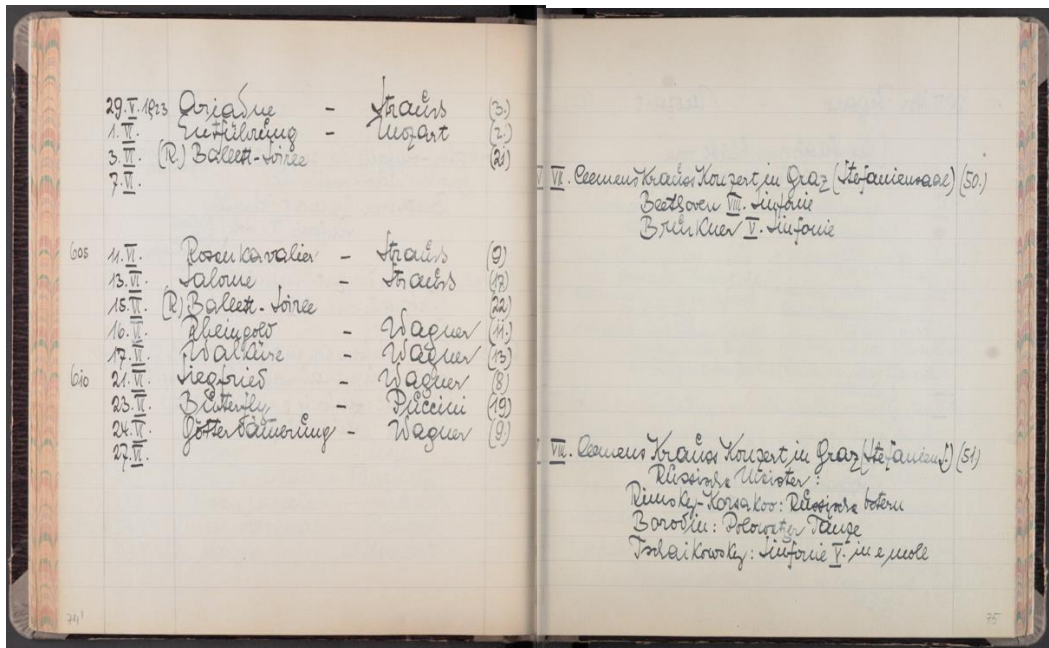 29.V.1923 Ariadne - Strauss (3.)
1.VI. Entführung - Mozart (2.)
3.VI. (R.) Ballett-Soiree (21)
7.VI.
605 11.VI. Rosenkavalier - Strauss (9)
13.VI. Salome - Strauss (17)
15.VI. (R.) Ballett-Soiree (22)
16.VI. Rheingold - Wagner (11.)
17.VI. Walküre - Wagner (13)
610 21.VI. Siegfried - Wagner (8)
23.VI. Butterfly - Puccini (19)
24.VI. Götterdämerung - Wagner (9)
27.VI.
74'
VII. Clemens Krauss Konzert in Graz (Stefaniensaal) (50.)
Beethoven VIII. Sinfonie
Bruckner V. Sinfonie
VIII. Clemens Krauss Konzert in Graz (Stefaniens.) (51)
Russische Meister:
Rimsky-Korsakoo: Russische Ostern
Borodin: Polowetzer Tänze
Tschaikowsky: Sinfonie V. in e moll
75